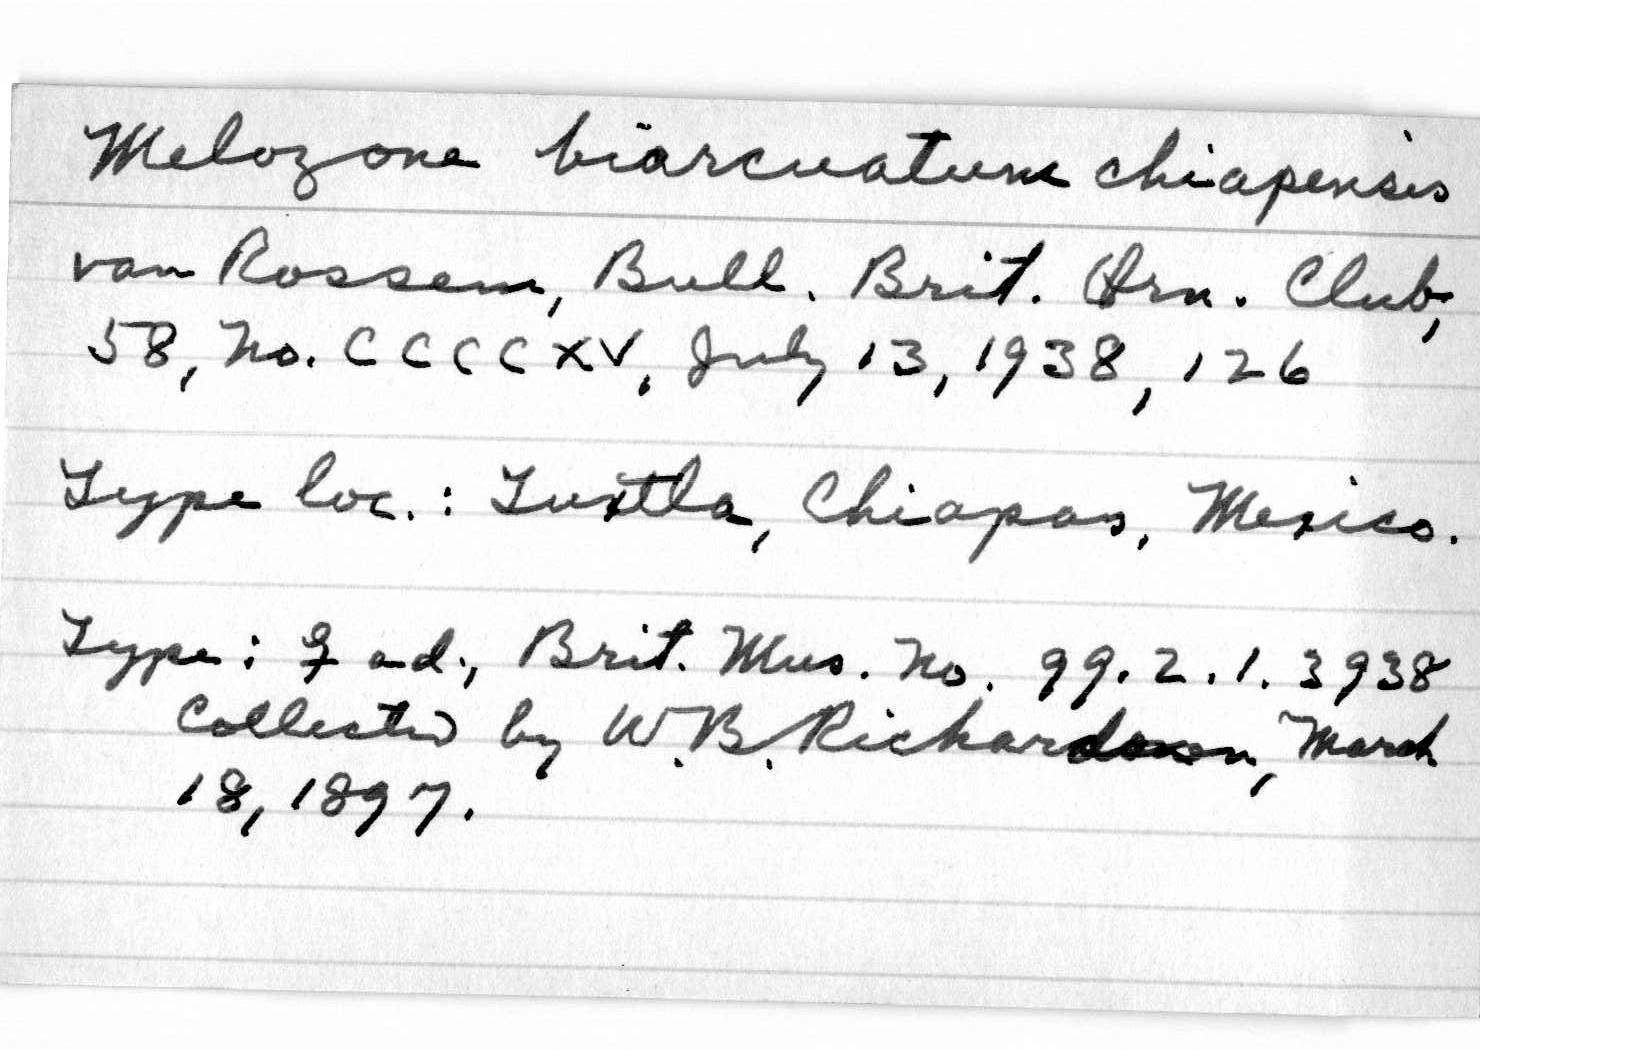 Melozone biarcuatum chiapensis
van Rossem, Bull. Brit. Orn. Club,
58, No. CCCCXV, July 13, 1938, 126
Type loc.: Tuxtla, Chiapas, Mexico.
Type: ♀ ad., Brit. Mus. No. 99.2.1.3938
Collected by W.B. Richardson, March
18, 1897.